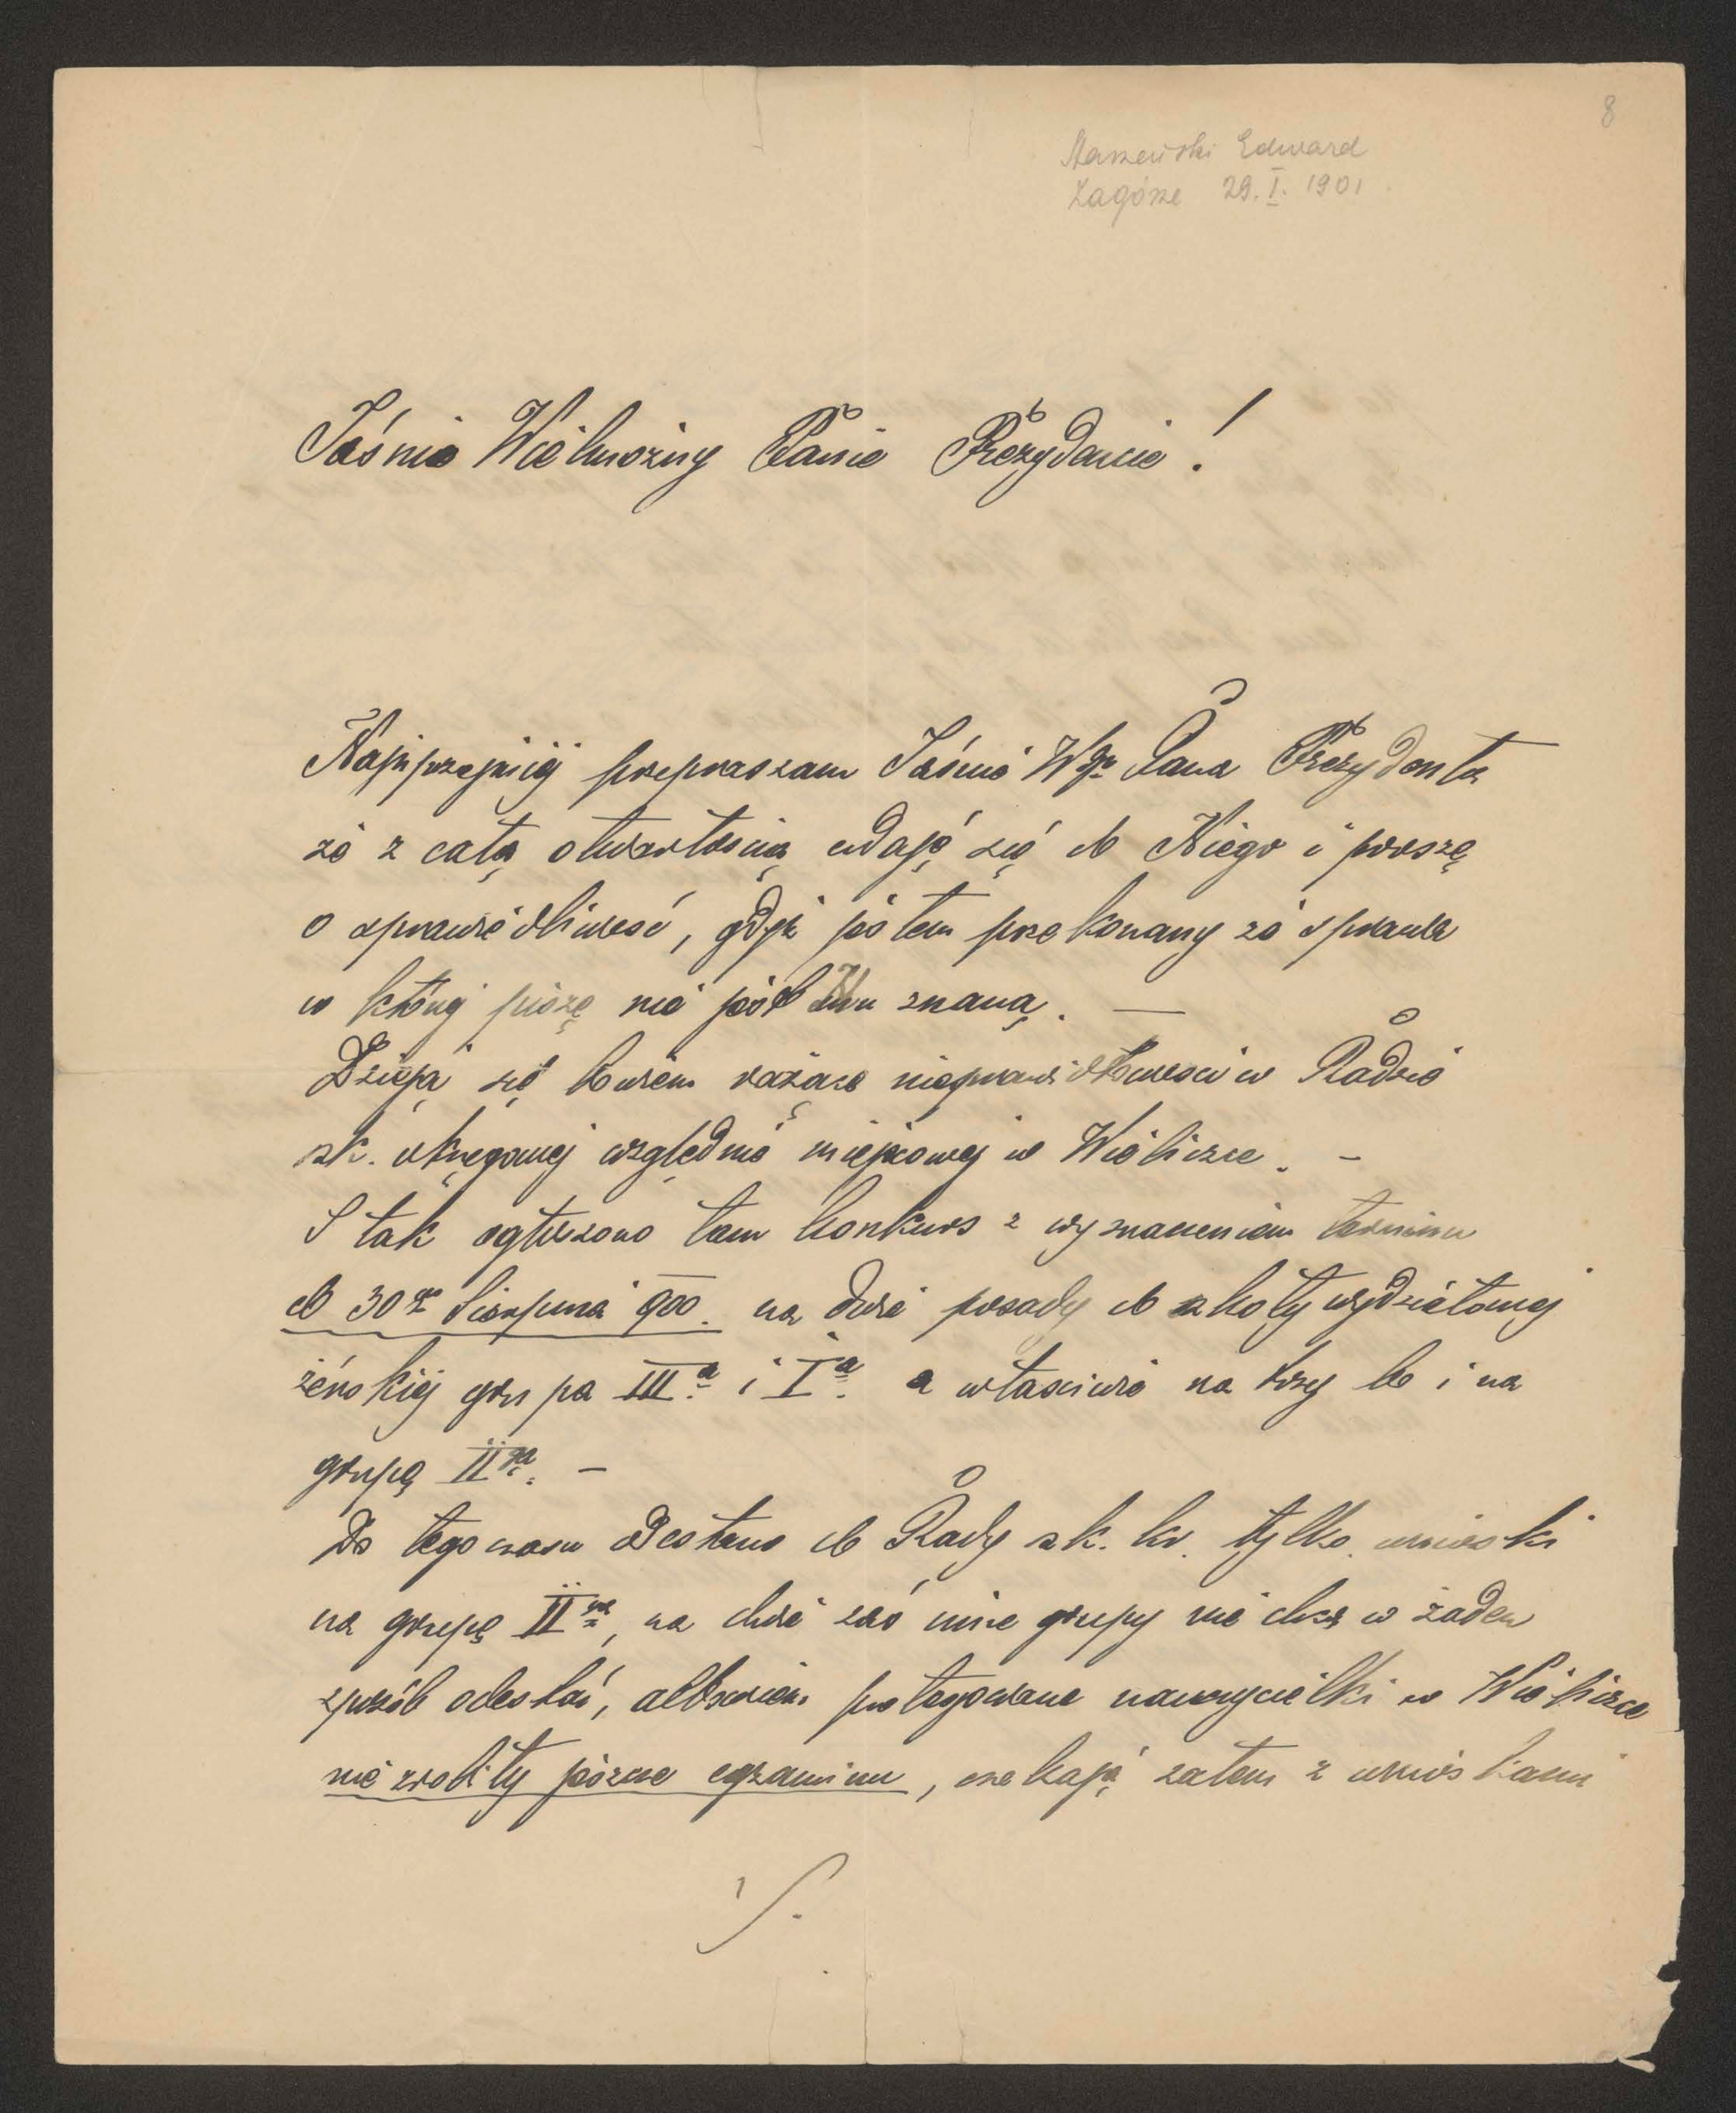 8
Maszewski Edward
Zagórze 29.I.1901
Jaśnie Wielmożny Panie Prezydencie!
Najuprzejmiej przepraszam Jaśnie Wgo Pana Prezydenta
że z całą otwartością udaję się do Niego i proszę
o sprawiedliwość, gdyż jestem przekonany że sprawa
w której piszę nie jest Mu znaną. —
Dzieją się bowiem rażące nieprawidłowości w Radzie
szk. okręgowej względnie miejscowej w Wieliczce. –
I tak ogłoszono tam konkurs z wyznaczeniem terminu
do 30go Sierpnia 900. na dwie posady do szkoły wydziałowej
żeńskiej grupa IIIa. i Ia. a właściwie na trzy bo i na
grupę IIgą. –
Do tego czasu odesłano do Rady szk. kr. tylko wnioski
na grupę IIgą, na dwie zaś inne grupy nie chcą w żaden
sposób odesłać, albowiem protegowane nauczycielki w Wieliczce
nie zrobiły jeszcze egzaminu, czekają zatem z wnioskami